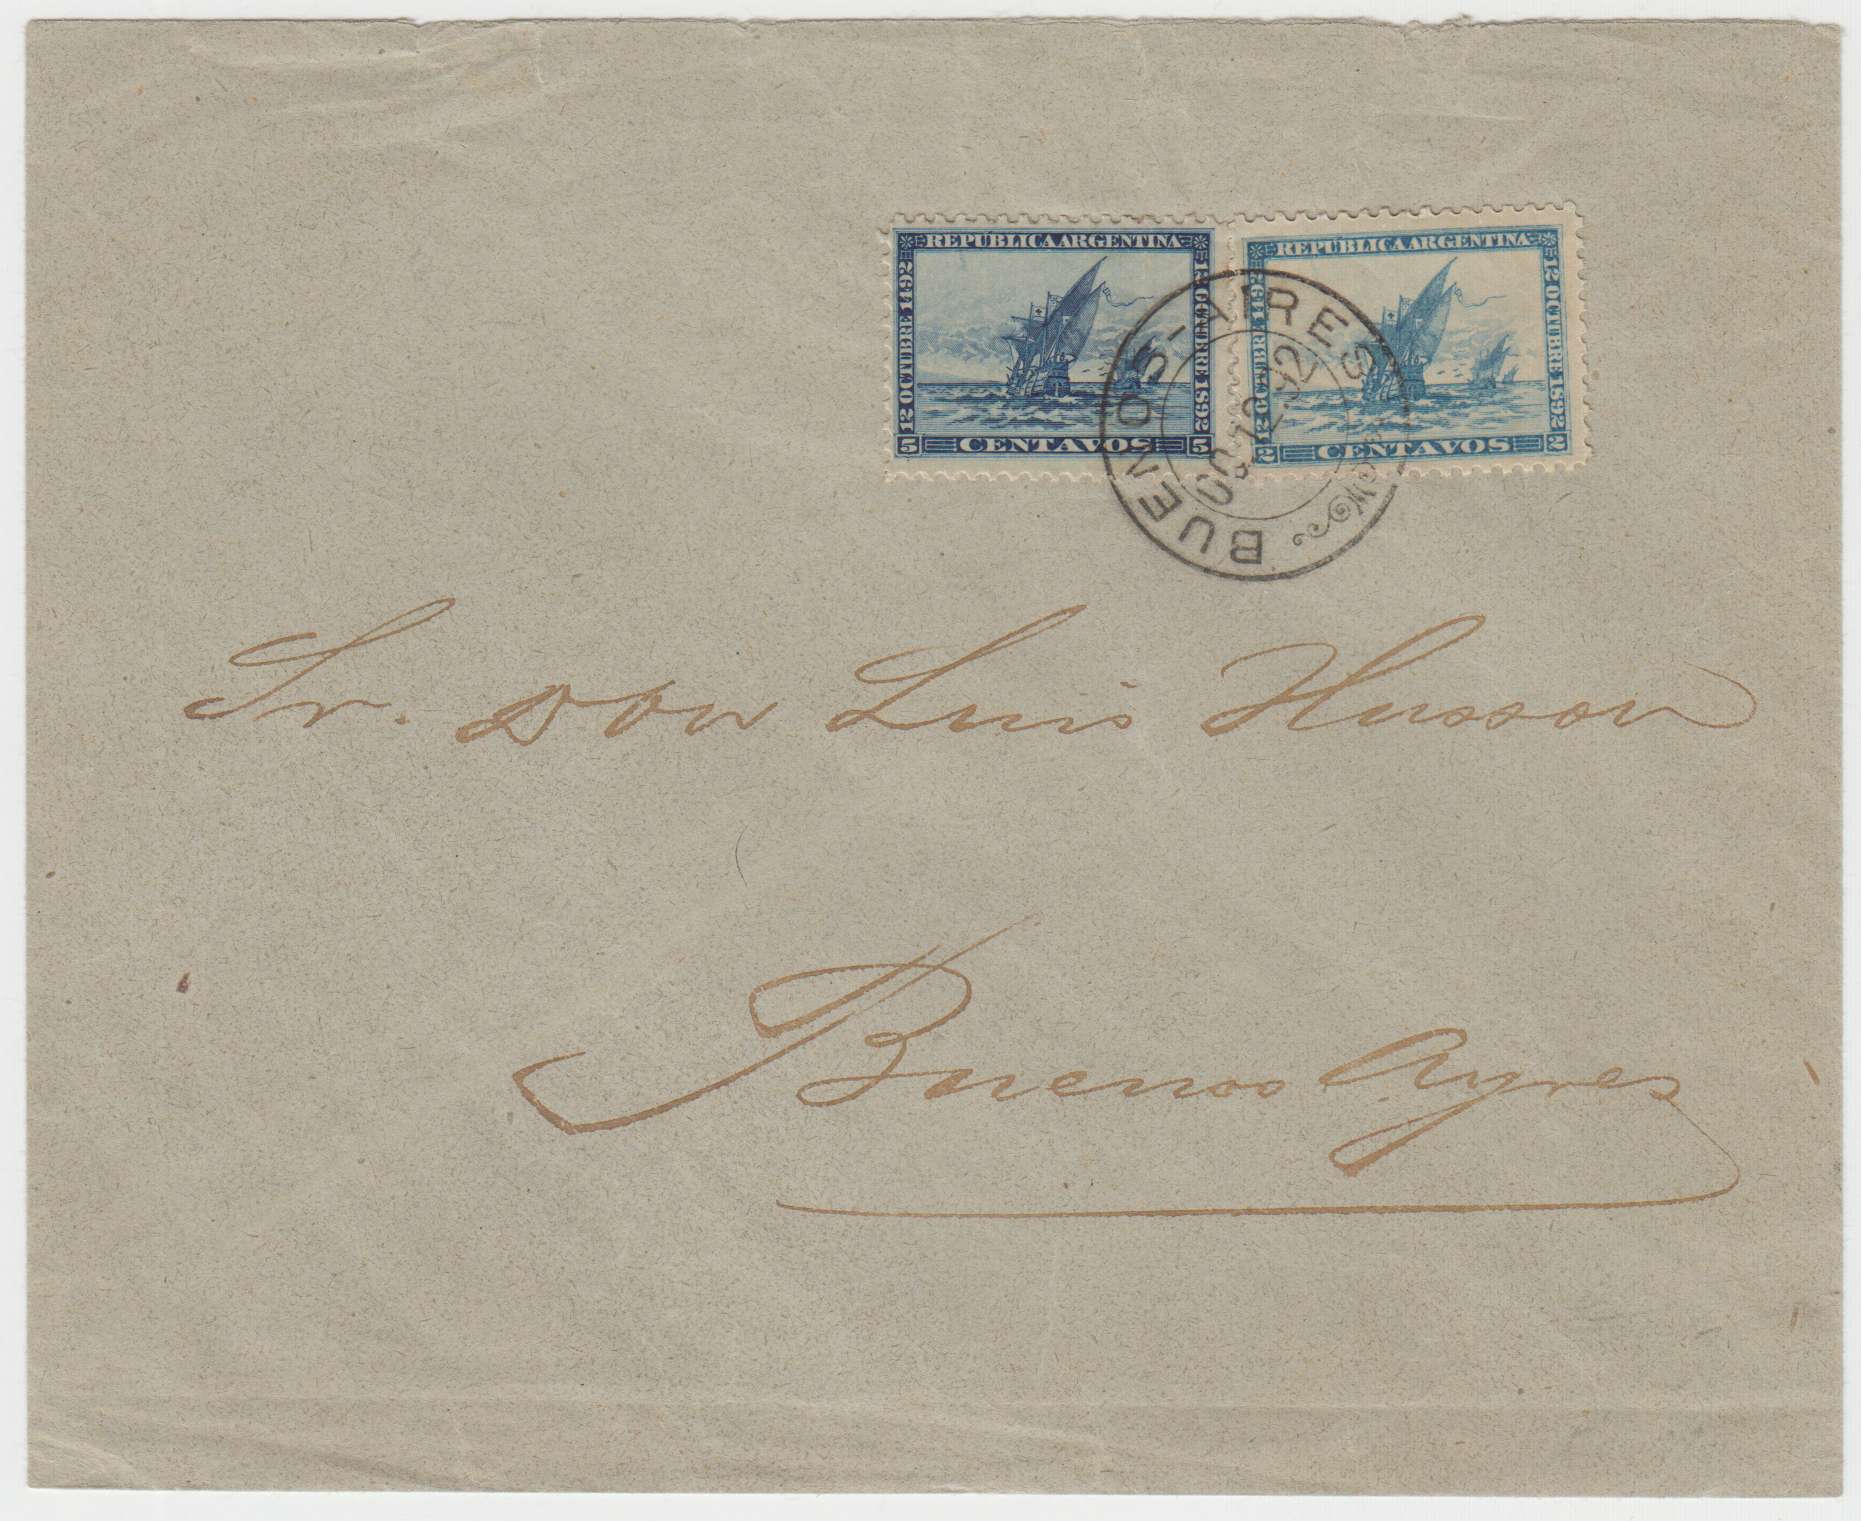 REPUBLICA ARGENTINA
12 OCTUBRE 1492
12 OCTUBRE 1892
5 CENTAVOS 5
REPUBLICA ARGENTINA
12 OCTUBRE 1492
12 OCTUBRE 1892
2 CENTAVOS 2
BUENOS-AIRES
OC 12 92
Sr. Don Luis Husson
Buenos Ayres